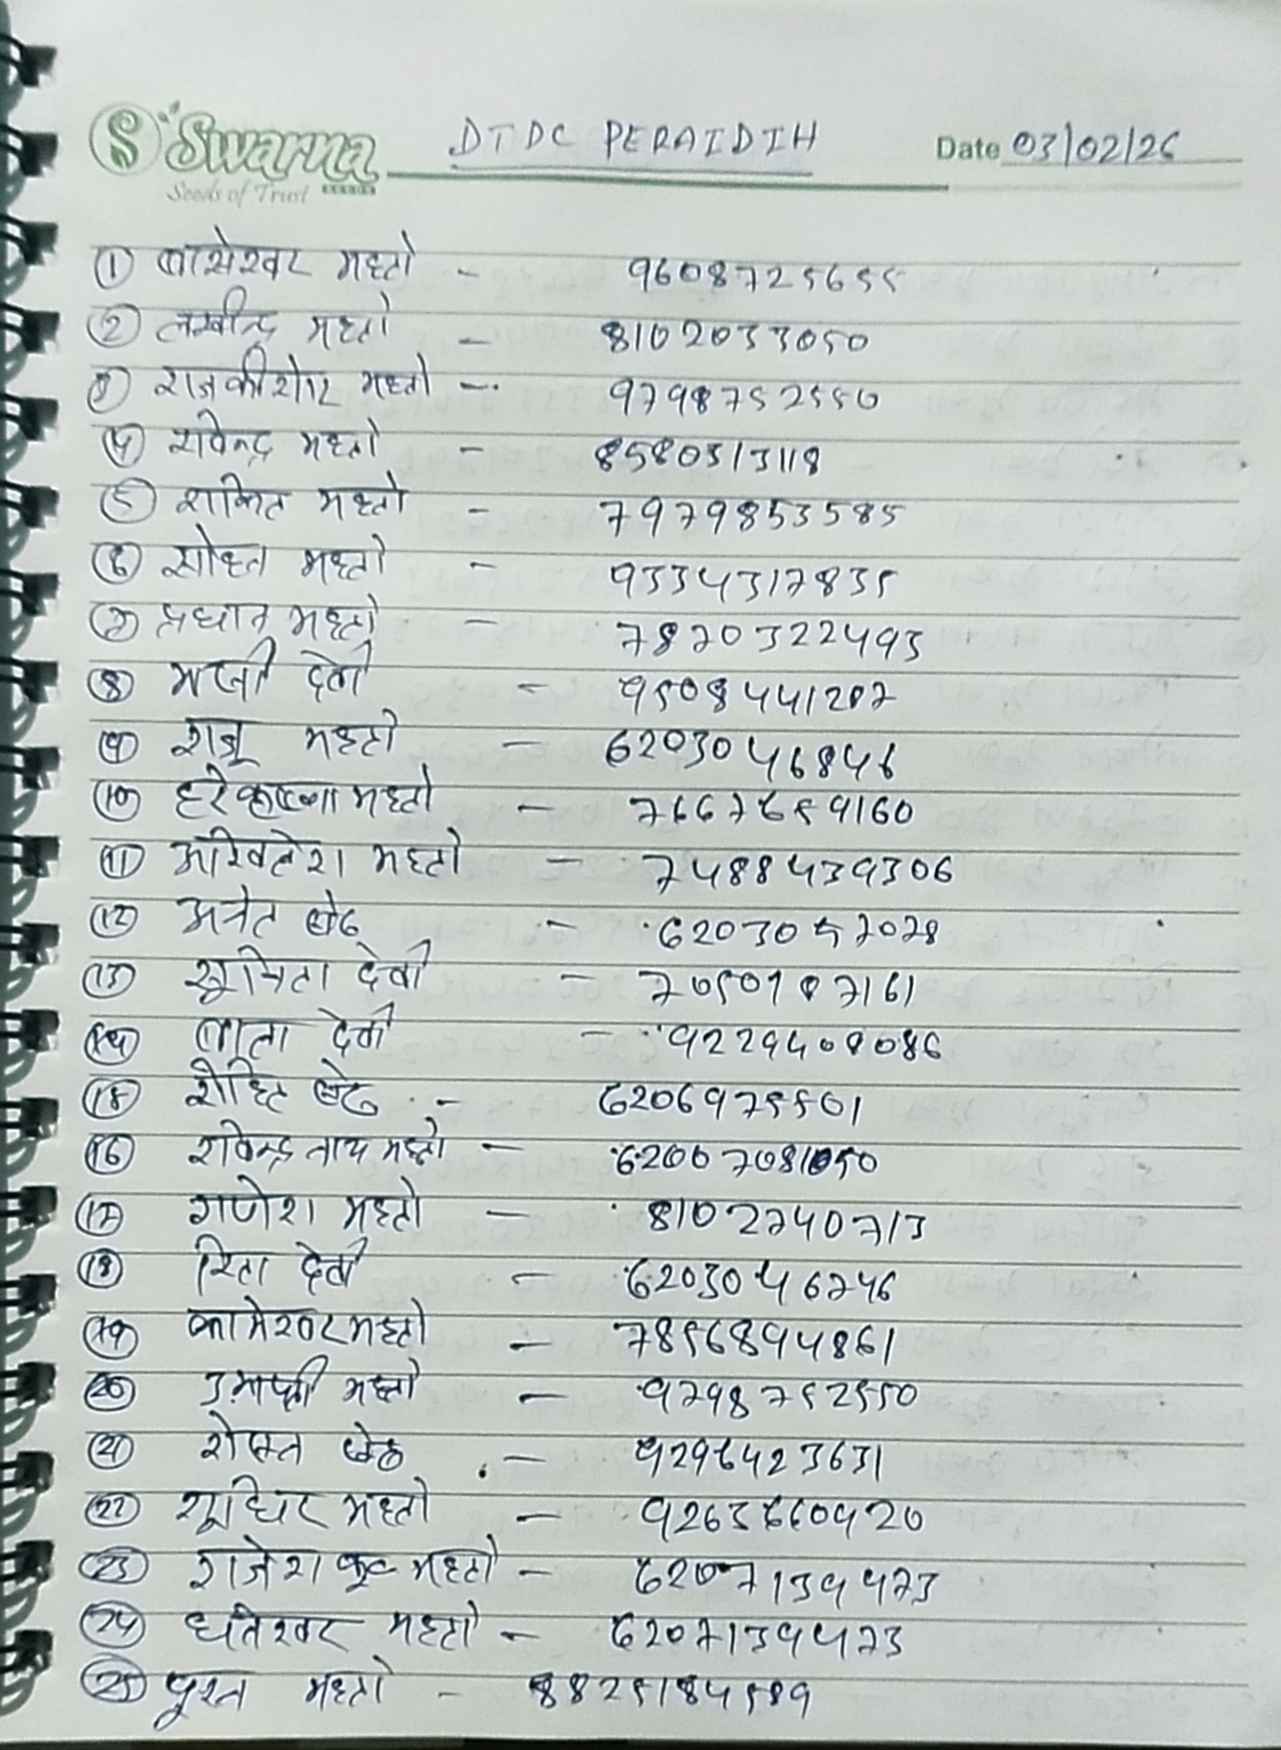 Swarna
Seeds of Trust
DTDC PERAIDIH
Date 03/02/26
① बासेश्वर महतो - 9608725655
② लखीन्द्र महतो - 8102033050
③ राजकीशोर महतो - 9798752550
④ रविन्द्र महतो - 8580313118
⑤ शकित महतो - 7979853585
⑥ सोहन महतो - 9334317835
⑦ प्रधान महतो - 7870322493
⑧ देवी - 9508441207
⑨ राजू महतो - 6203046846
⑩ हरेकृष्णा महतो - 7667659160
⑪ अखिलेश महतो - 7488439306
⑫ - 6203047078
⑬ सूचिता देवी - 7050187161
⑭ देवी - 9229408086
⑮ रोहित - 6206975501
⑯ रविन्द्र नाथ महतो - 62007081050
⑰ गणेश महतो - 8102740713
⑱ रिता देवी - 6203046746
⑲ कामेश्वर महतो - 7856894861
⑳ महतो - 9798752550
㉑ - 9296423631
㉒ सूधिर महतो - 9263660920
㉓ राजेश कु० महतो - 6207139473
㉔ धनेश्वर महतो - 6207139473
㉕ पूरन महतो - 8825184589